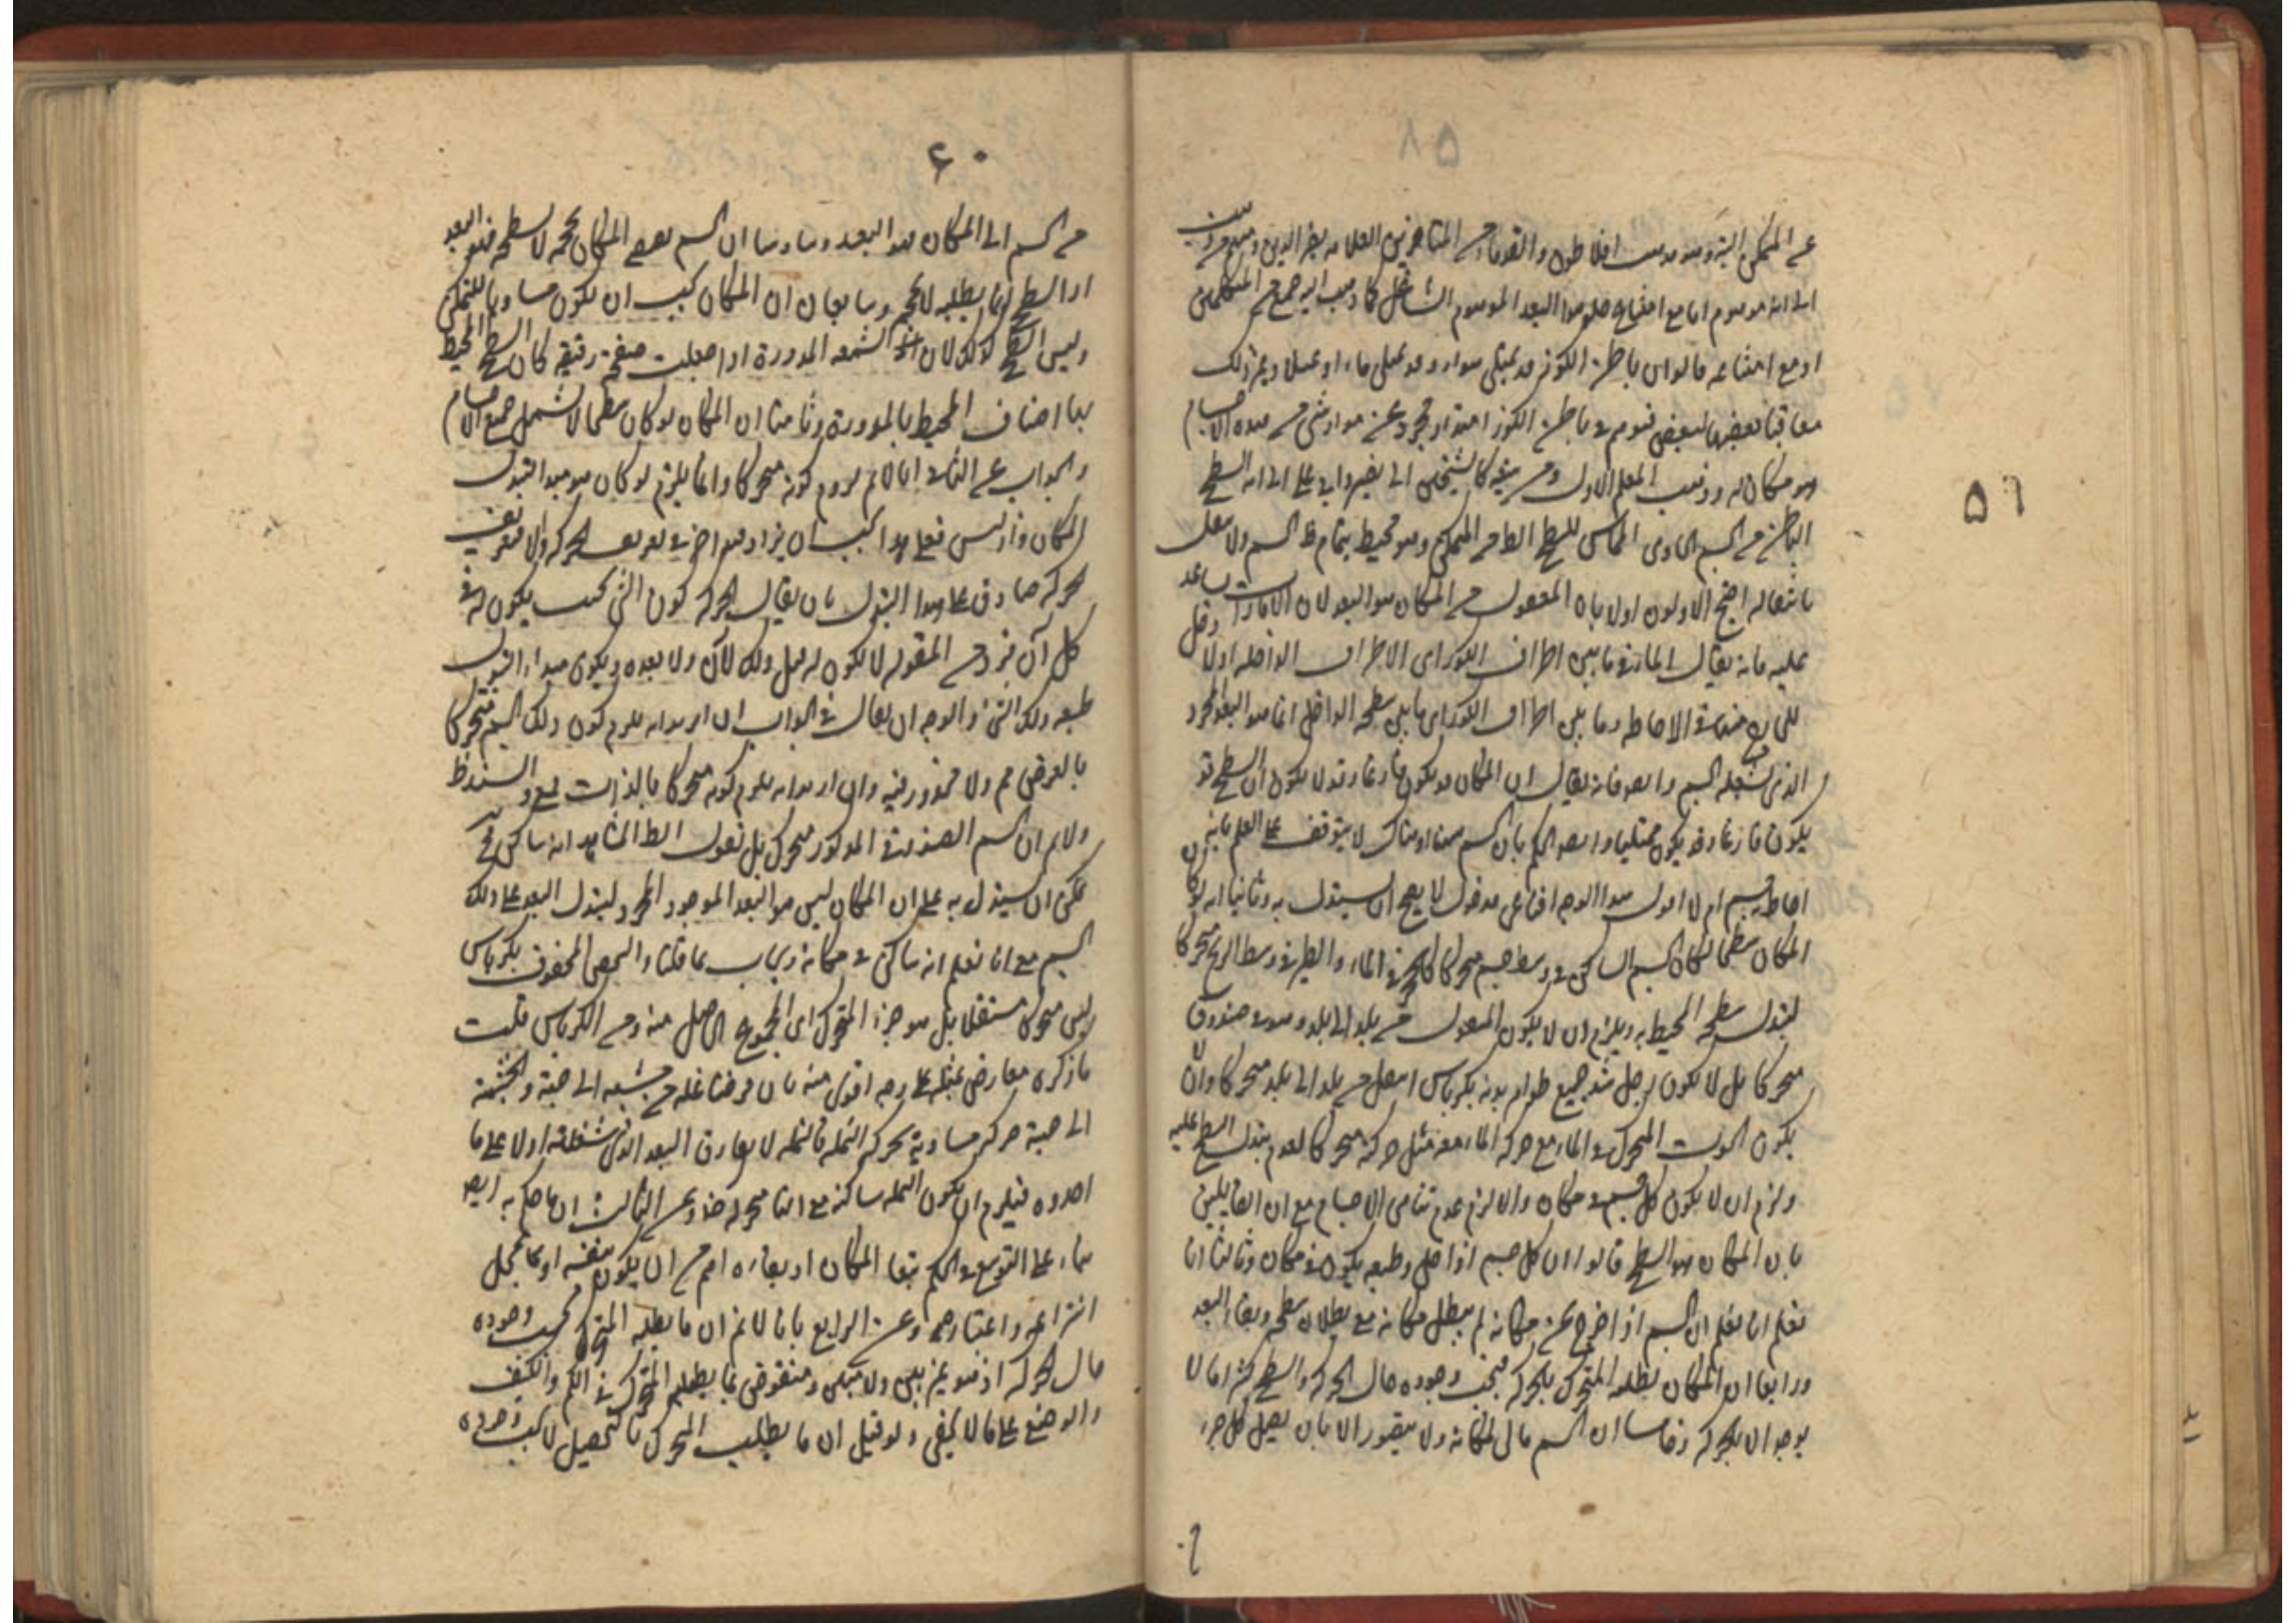 ٥٨
عن المتمكن البتة وهو مذهب افلاطون والقدماء ومن المتأخرين العلامة نصير الدين ومنهم من ذهب
الى انه موهوم اما مع امتناع خلو هذا البعد الموهوم الشاغل كما ذهب اليه جمع من المتكلمين
او مع امتناعه قالوا ان باطن الكوز قد يمتلى هواء وقد يمتلى ماء او عسلا وغير ذلك
معاقبا بعضها لبعض فنوهم فى باطن الكوز امتداد مجرد عن مواد شى من هذه الاجسام
وهو مكان له وذهب المعلم الاول ومن تبعه كالشيخين ابى نصر وابى على الى انه السطح
الباطن من الجسم الحاوى المماس للسطح الظاهر من المتمكن وهو محيط بتمام ظ الجسم ولا ينتقل
بانتقاله احتج الاولون اولا بان المعقول من المكان هو البعد لان الامارات تساعد
عليه فانه يقال الماء فى ما بين اطراف الكوز اى الاطراف الداخلة ولا دخل
للخارج منها فى الاحاطة وما بين اطراف الكوز اى ما بين سطحه الداخل انما هو البعد المجرد
الذى يشغله الجسم وايضا فانه يقال ان المكان قد يكون فارغا وقد لا يكون اى السطح قد
يكون فارغا وقد يكون ممتليا وايضا الحكم بان الجسم هنا او هناك لا يتوقف على العلم بانه
احاط به جسم ام لا اقول هذا الوجه اقناعى مدخول لا يصح ان يستدل به وثانيا انه لو كان
المكان سطحا لكان الجسم الساكن فى وسط جسم متحركا كالحجر فى الماء والطير فى وسط الريح متحركا
لتبدل سطحه المحيط به ويلزم ان لا يكون المنقول من بلد الى بلد وهو فى صندوق
متحركا بل لا يكون رجل شد جميع ظواهر بدنه بكرباس انتقل من بلد الى بلد متحركا وان لا
يكون الحوت المتحرك فى الماء مع حركة الماء معه مثل حركته متحركا لعدم تبدل السطح عليه
ولزم ان لا يكون كل جسم فى مكان والا لزم عدم تناهى الاجسام مع ان القايلين
بان المكان هو السطح قالوا ان كل جسم اذا خلى وطبعه يكون فى مكان وثالثا انا
نعلم انا نعلم ان الجسم اذا اخرج عن مكانه لم يبطل مكانه مع بطلان سطحه وبقاء البعد
ورابعا ان المكان يطلبه المتحرك بالحركة فيجب وجوده حال الحركة والسطح كثيرا ما لا
يوجد الا بالحركة وخامسا ان الجسم مالى لمكانه ولا يتصور الا بان يصل كل جزء
٥٦
٦٠
من الجسم الى المكان هو البعد وسادسا ان الجسم يقتضى المكان بحجمه لا بسطحه فهو البعد
اذ السطح انما يطلبه لا بحجمه وسابعا ان المكان يجب ان يكون مساويا للمتمكن
وليس السطح كذلك لان الشمعة المدورة اذا جعلت صفحة رقيقة كان السطح المحيط
بها اضعاف المحيط بالمدورة وثامنا ان المكان لو كان سطحا لا يشمل جميع الاجسام
والجواب عن الثانى انا لا نم لزوم كونه متحركا وانما يلزم لو كان هو مبدا لتبدل
المكان واذ ليس فعلى هذا يجب ان يزاد قيد اخر فى تعريف الحركة والا فتعريف
الحركة صادق على هذا التبدل بان يقال الحركة كون الشى بحيث يكون له فى
كل آن فرد من المقولة لا يكون له قبل ذلك الآن ولا بعده ويكون مبداء التبدل
طبيعة ذلك الشئ والوجه ان يقال فى الجواب ان اريد انه يلزم كون ذلك الجسم متحركا
بالعرض مم ولا محذور فيه وان اريد انه يلزم كونه متحركا بالذات لمنع والسند ظ
ولا نم ان الجسم الصندوق المذكور متحرك بل نقول الظ المشاهد انه ساكن وح
يمكن ان يستدل به على ان المكان ليس هو البعد الموجود المجرد لتبدل البعد على ذلك
الجسم مع انا نعلم انه ساكن فى مكانه ويجاب بما قلنا والشخص الملفوف بكرباس
ليس متحركا مستقلا بل هو جزء المتحرك اى المجموع الحاصل منه ومن الكرباس قلت
ما ذكره معارض بمثله على وجه اقوى منه بان فرضنا نملة من خشبة الى جهة والخشبة
الى جهة حركة مساوية لحركة النملة فالنملة لا يفارق البعد الذى شغلته اولا على ما
اخذوه فيلزم ان يكون النملة ساكنة مع انها متحركة هذا وعن الثالث ان ما حكم به ايضا
بناء على التوسع والحكم ببقاء المكان او بقاءه اعم من ان يكون بنفسه او بما يجعل
انتزاعه واعتباره وعن الرابع بانا لا نم ان ما يطلبه المتحرك يجب وجوده
حال الحركة اذ هو غير بين ولا مبين ومنقوض بما يطلبه المتحرك فى الكم والكيف
والوضع على ما لا يخفى ولو قيل ان ما يطلب المتحرك بالتحصيل لا يجب وجوده